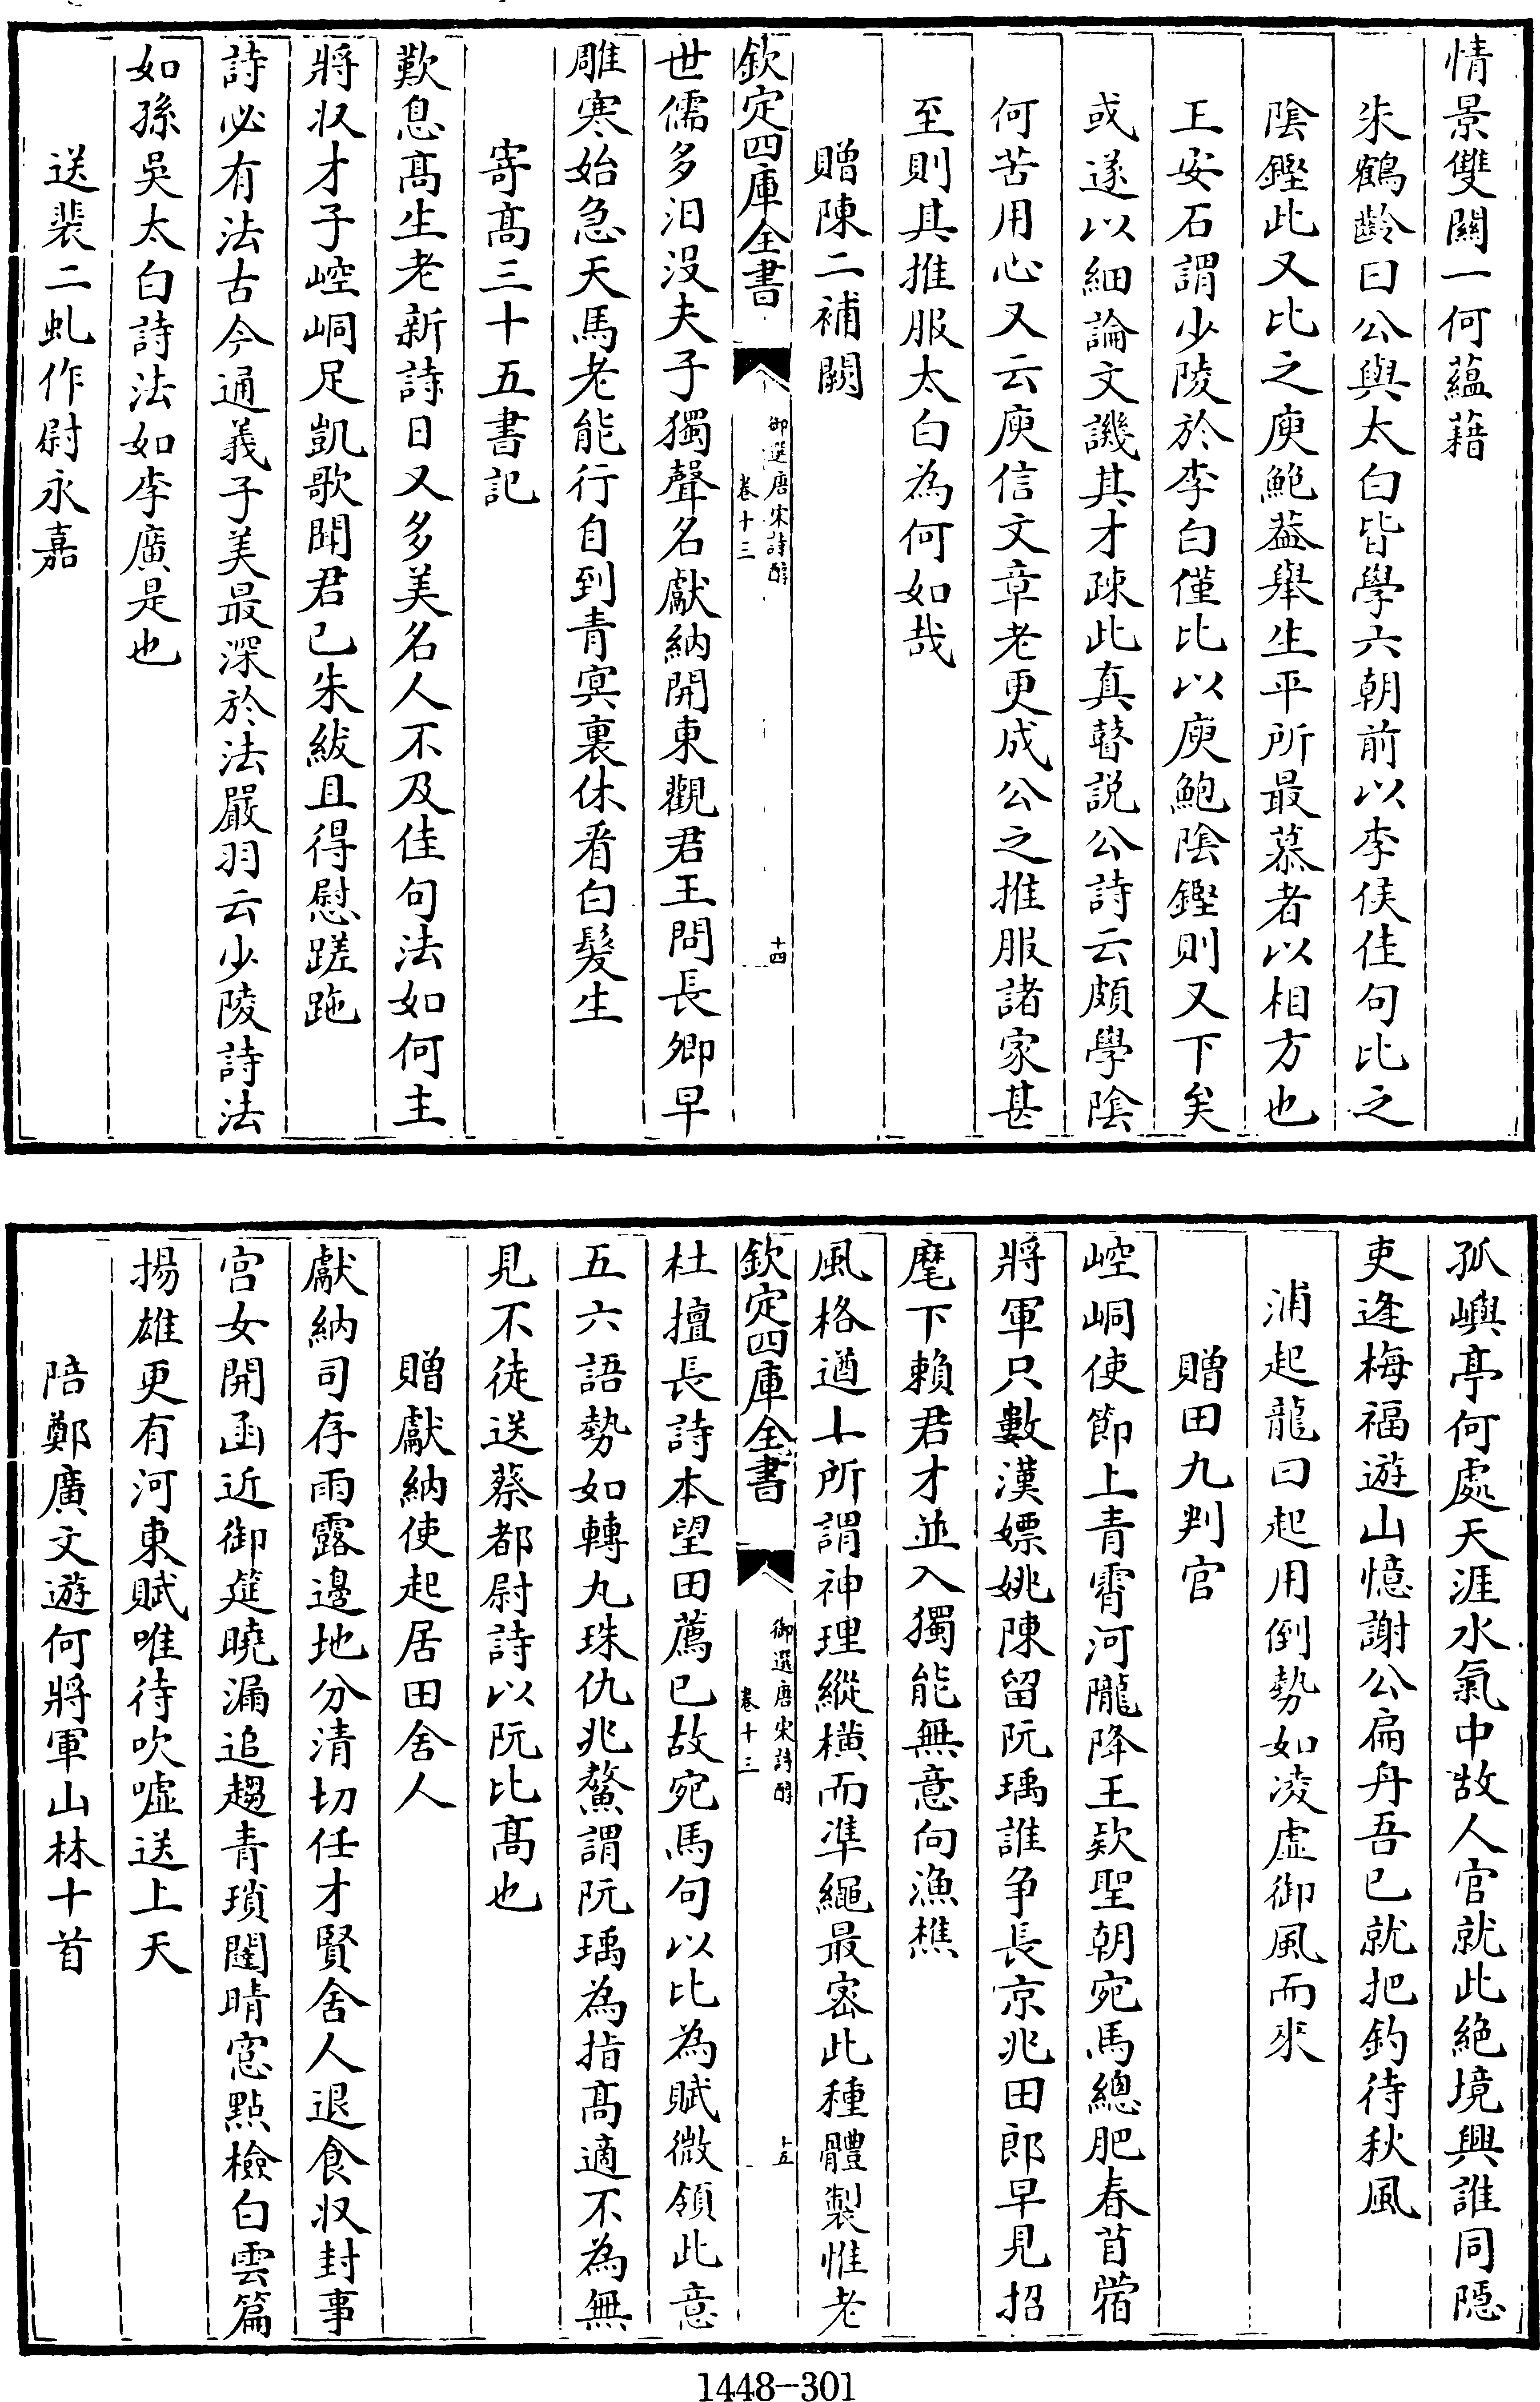 情景雙關一何蘊藉
朱鶴齡曰公與太白皆學六朝前以李侯佳句比之
陰鏗此又比之庾鮑葢舉生平所最慕者以相方也
王安石謂少陵於李白僅比以庾鮑陰鏗則又下矣
或遂以細論文譏其才疎此真瞽説公詩云頗學陰
何苦用心又云庾信文章老更成公之推服諸家甚
至則其推服太白為何如哉
贈陳二補闕
欽定四庫全書
御選唐宋詩醇
卷十三
十四
世儒多汨沒夫子獨聲名獻納開東觀君王問長卿早
雕寒始急天馬老能行自到青㝠裏休看白髮生
寄髙三十五書記
歎息髙生老新詩日又多美名人不及佳句法如何主
將收才子崆峒足凱歌聞君已朱紱且得慰蹉跎
詩必有法古今通義子美最深於法嚴羽云少陵詩法
如孫吳太白詩法如李廣是也
送裴二虬作尉永嘉
孤嶼亭何處天涯水氣中故人官就此絶境興誰同隱
吏逢梅福遊山憶謝公扁舟吾已就把釣待秋風
浦起龍曰起用倒勢如凌虛御風而來
贈田九判官
崆峒使節上青霄河隴降王欵聖朝宛馬總肥春苜蓿
將軍只數漢嫖姚陳留阮瑀誰争長京兆田郎早見招
麾下賴君才並入獨能無意向漁樵
風格遒上所謂神理縱横而凖繩最宻此種體製惟老
欽定四庫全書
御選唐宋詩醇
卷十三
十五
杜擅長詩本望田薦已故宛馬句以比為賦微領此意
五六語勢如轉丸珠仇兆鰲謂阮瑀為指髙適不為無
見不徒送蔡都尉詩以阮比髙也
贈獻納使起居田舍人
獻納司存雨露邊地分清切任才賢舍人退食收封事
宫女開函近御筵曉漏追趨青瑣闥晴窻點檢白雲篇
揚雄更有河東賦唯待吹嘘送上天
陪鄭廣文遊何將軍山林十首
1448-301